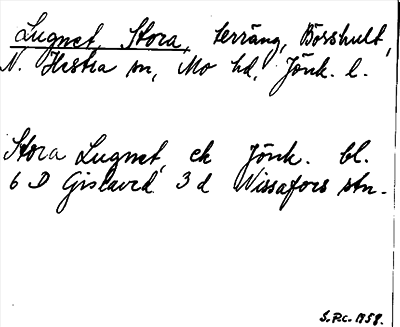 Lugnet, Stora, terräng, Bösshult,
N. Hestra sn, Mo hd, Jönk. l.
Stora Lugnet, ek Jönk. bl.
6 D Gislaved 3 d Nissafors stn.
S.Pc. 1958.